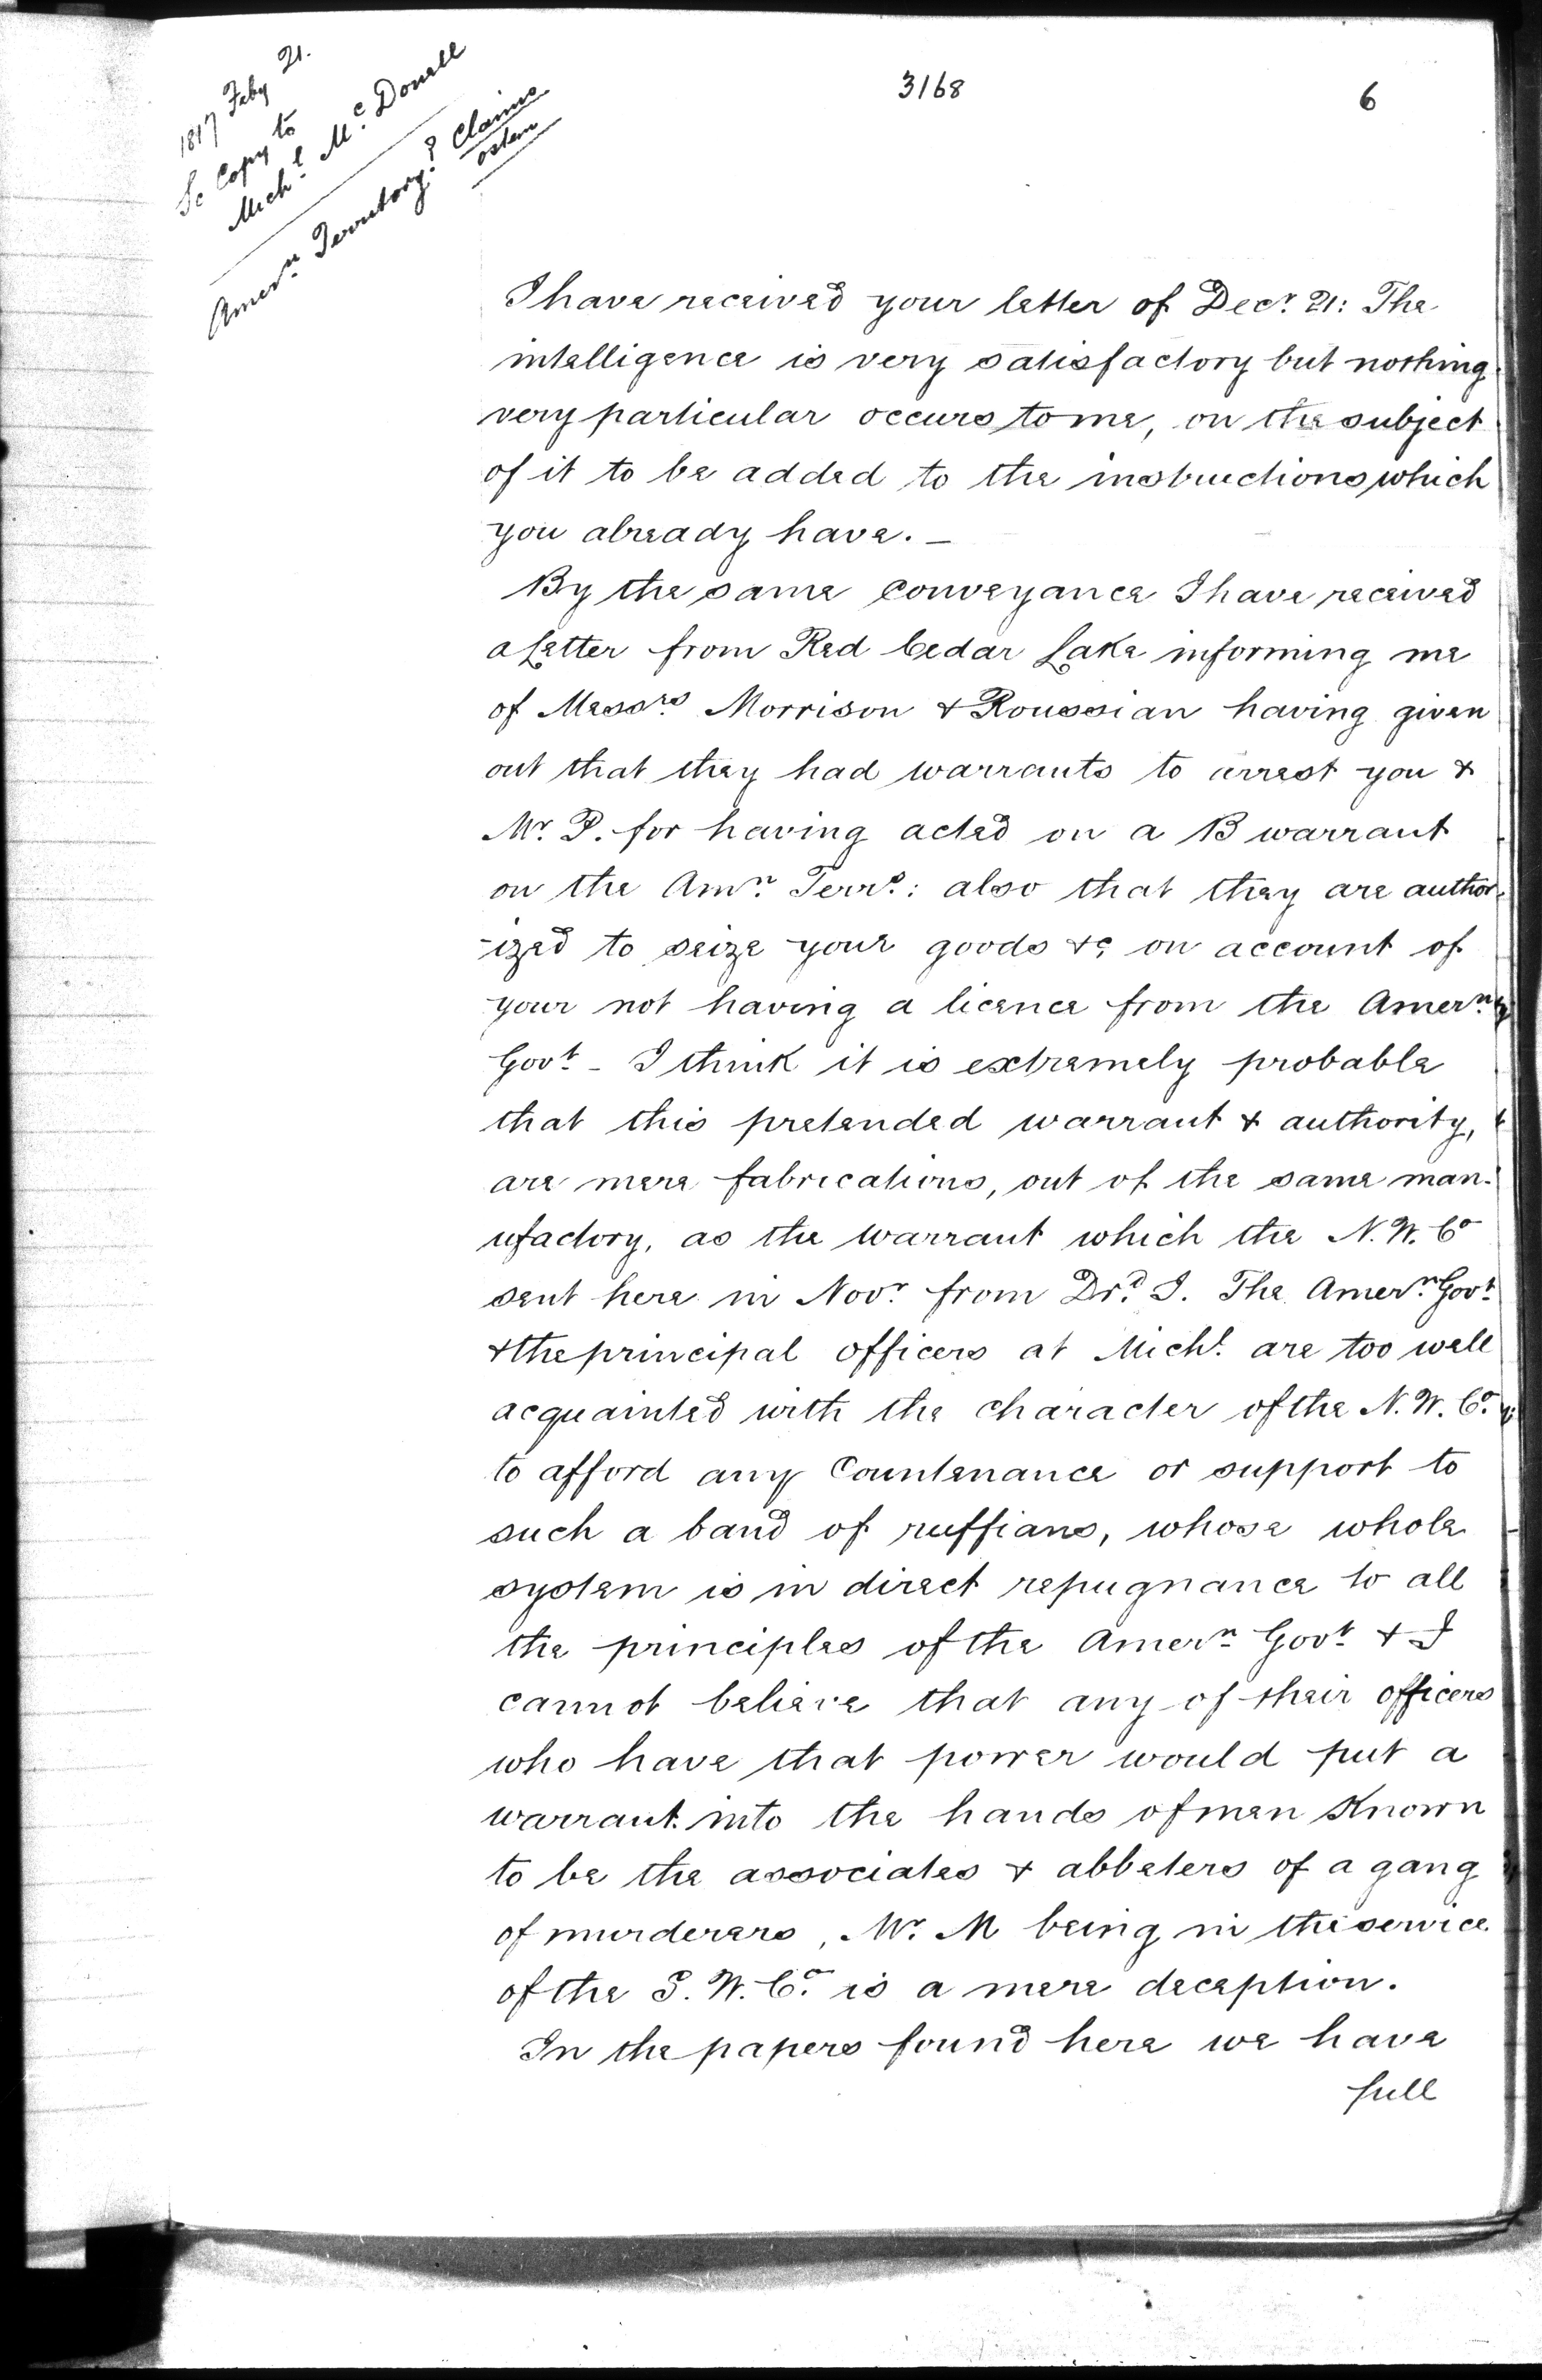 3168
6
1817 Feby 21.
Sc Copy to
Michl. McDonell
Amern. Territory? Claims
I have received your letter of Decr. 21: The
intelligence is very satisfactory but nothing
very particular occurs to me, on the subject
of it to be added to the instructions which
you already have. —
By the same conveyance I have received
a Letter from Red Cedar Lake informing me
of Messrs Morrison & Roussian having given
out that they had warrants to arrest you &
Mr. P. for having acted on a B warrant
on the Amn. Terry.: also that they are author-
-ized to seize your goods &c, on account of
your not having a licence from the Amern.
Govt. - I think it is extremely probable
that this pretended warrant & authority,
are mere fabrications, out of the same man-
ufactory, as the warrant which the N.W. Co
sent here in Novr. from Drd. I. The Amern. Govt.
& the principal officers at Michl. are too well
acquainted with the character of the N.W. Co.
to afford any Countenance or support to
such a band of ruffians, whose whole
system is in direct repugnance to all
the principles of the Amern. Govt. & I
cannot believe that any of their officers
who have that power would put a
warrant into the hands of men Known
to be the associates & abbeters of a gang
of murderers, Mr. M being in the service
of the S.W. Co. is a mere deception.
In the papers found here we have
full